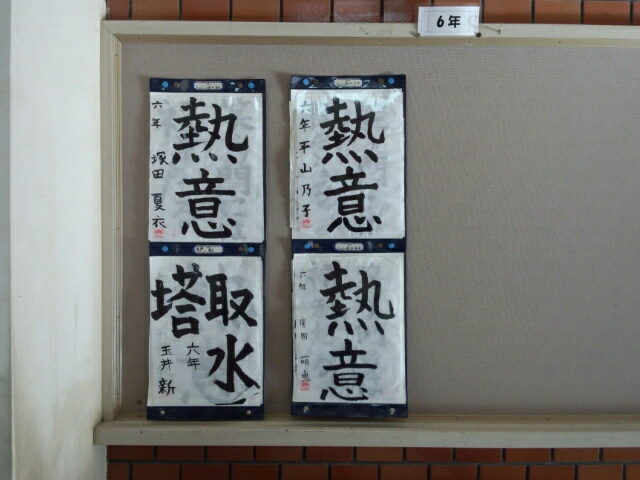 6年
熱意
六年 塚田 夏衣
熱意
六年 平山乃子
取水
塔
六年
玉井 新
熱意
六年